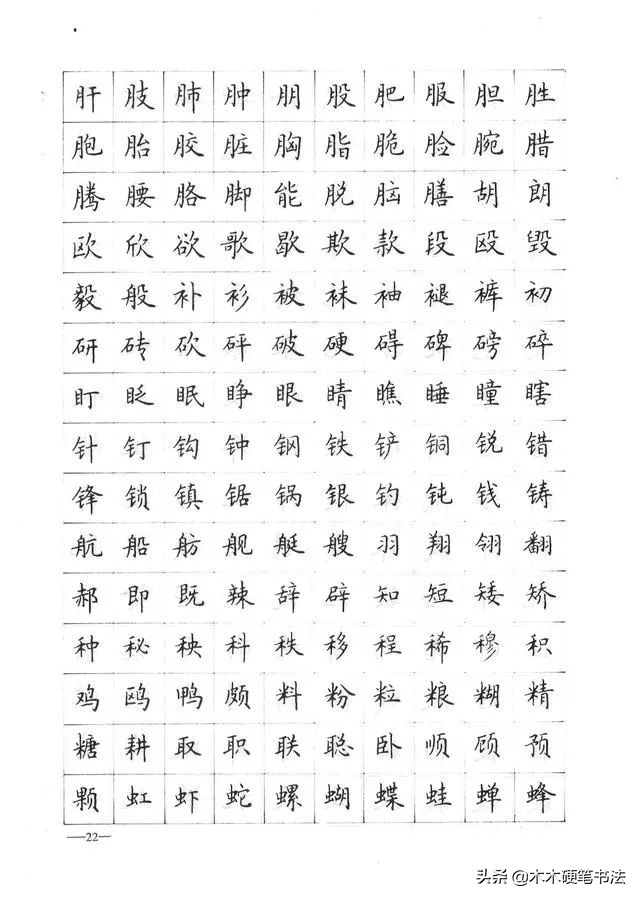 肝肢肺肿朋股肥服胆胜
胞胎胶脏胸脂脆脸腕腊
腾腰胳脚能脱脑膳胡朗
欧欣欲歌歇欺款段殴毁
毅般补衫被袜袖褪裤初
研砖砍砰破硬碍碑磅碎
盯眨眠睁眼睛瞧睡瞳瞎
针钉钩钟钢铁铲铜锐错
锋锁镇锯锅银钓钝钱铸
航船舫舰艇艘羽翔翎翻
郝即既辣辞辟知短矮矫
种秘秧科秩移程稀穆积
鸡鸥鸭颇料粉粒粮糊精
糖耕取职联聪卧顺顾预
颗虹虾蛇螺蝴蝶蛙蝉蜂
—22—
头条 @木木硬笔书法